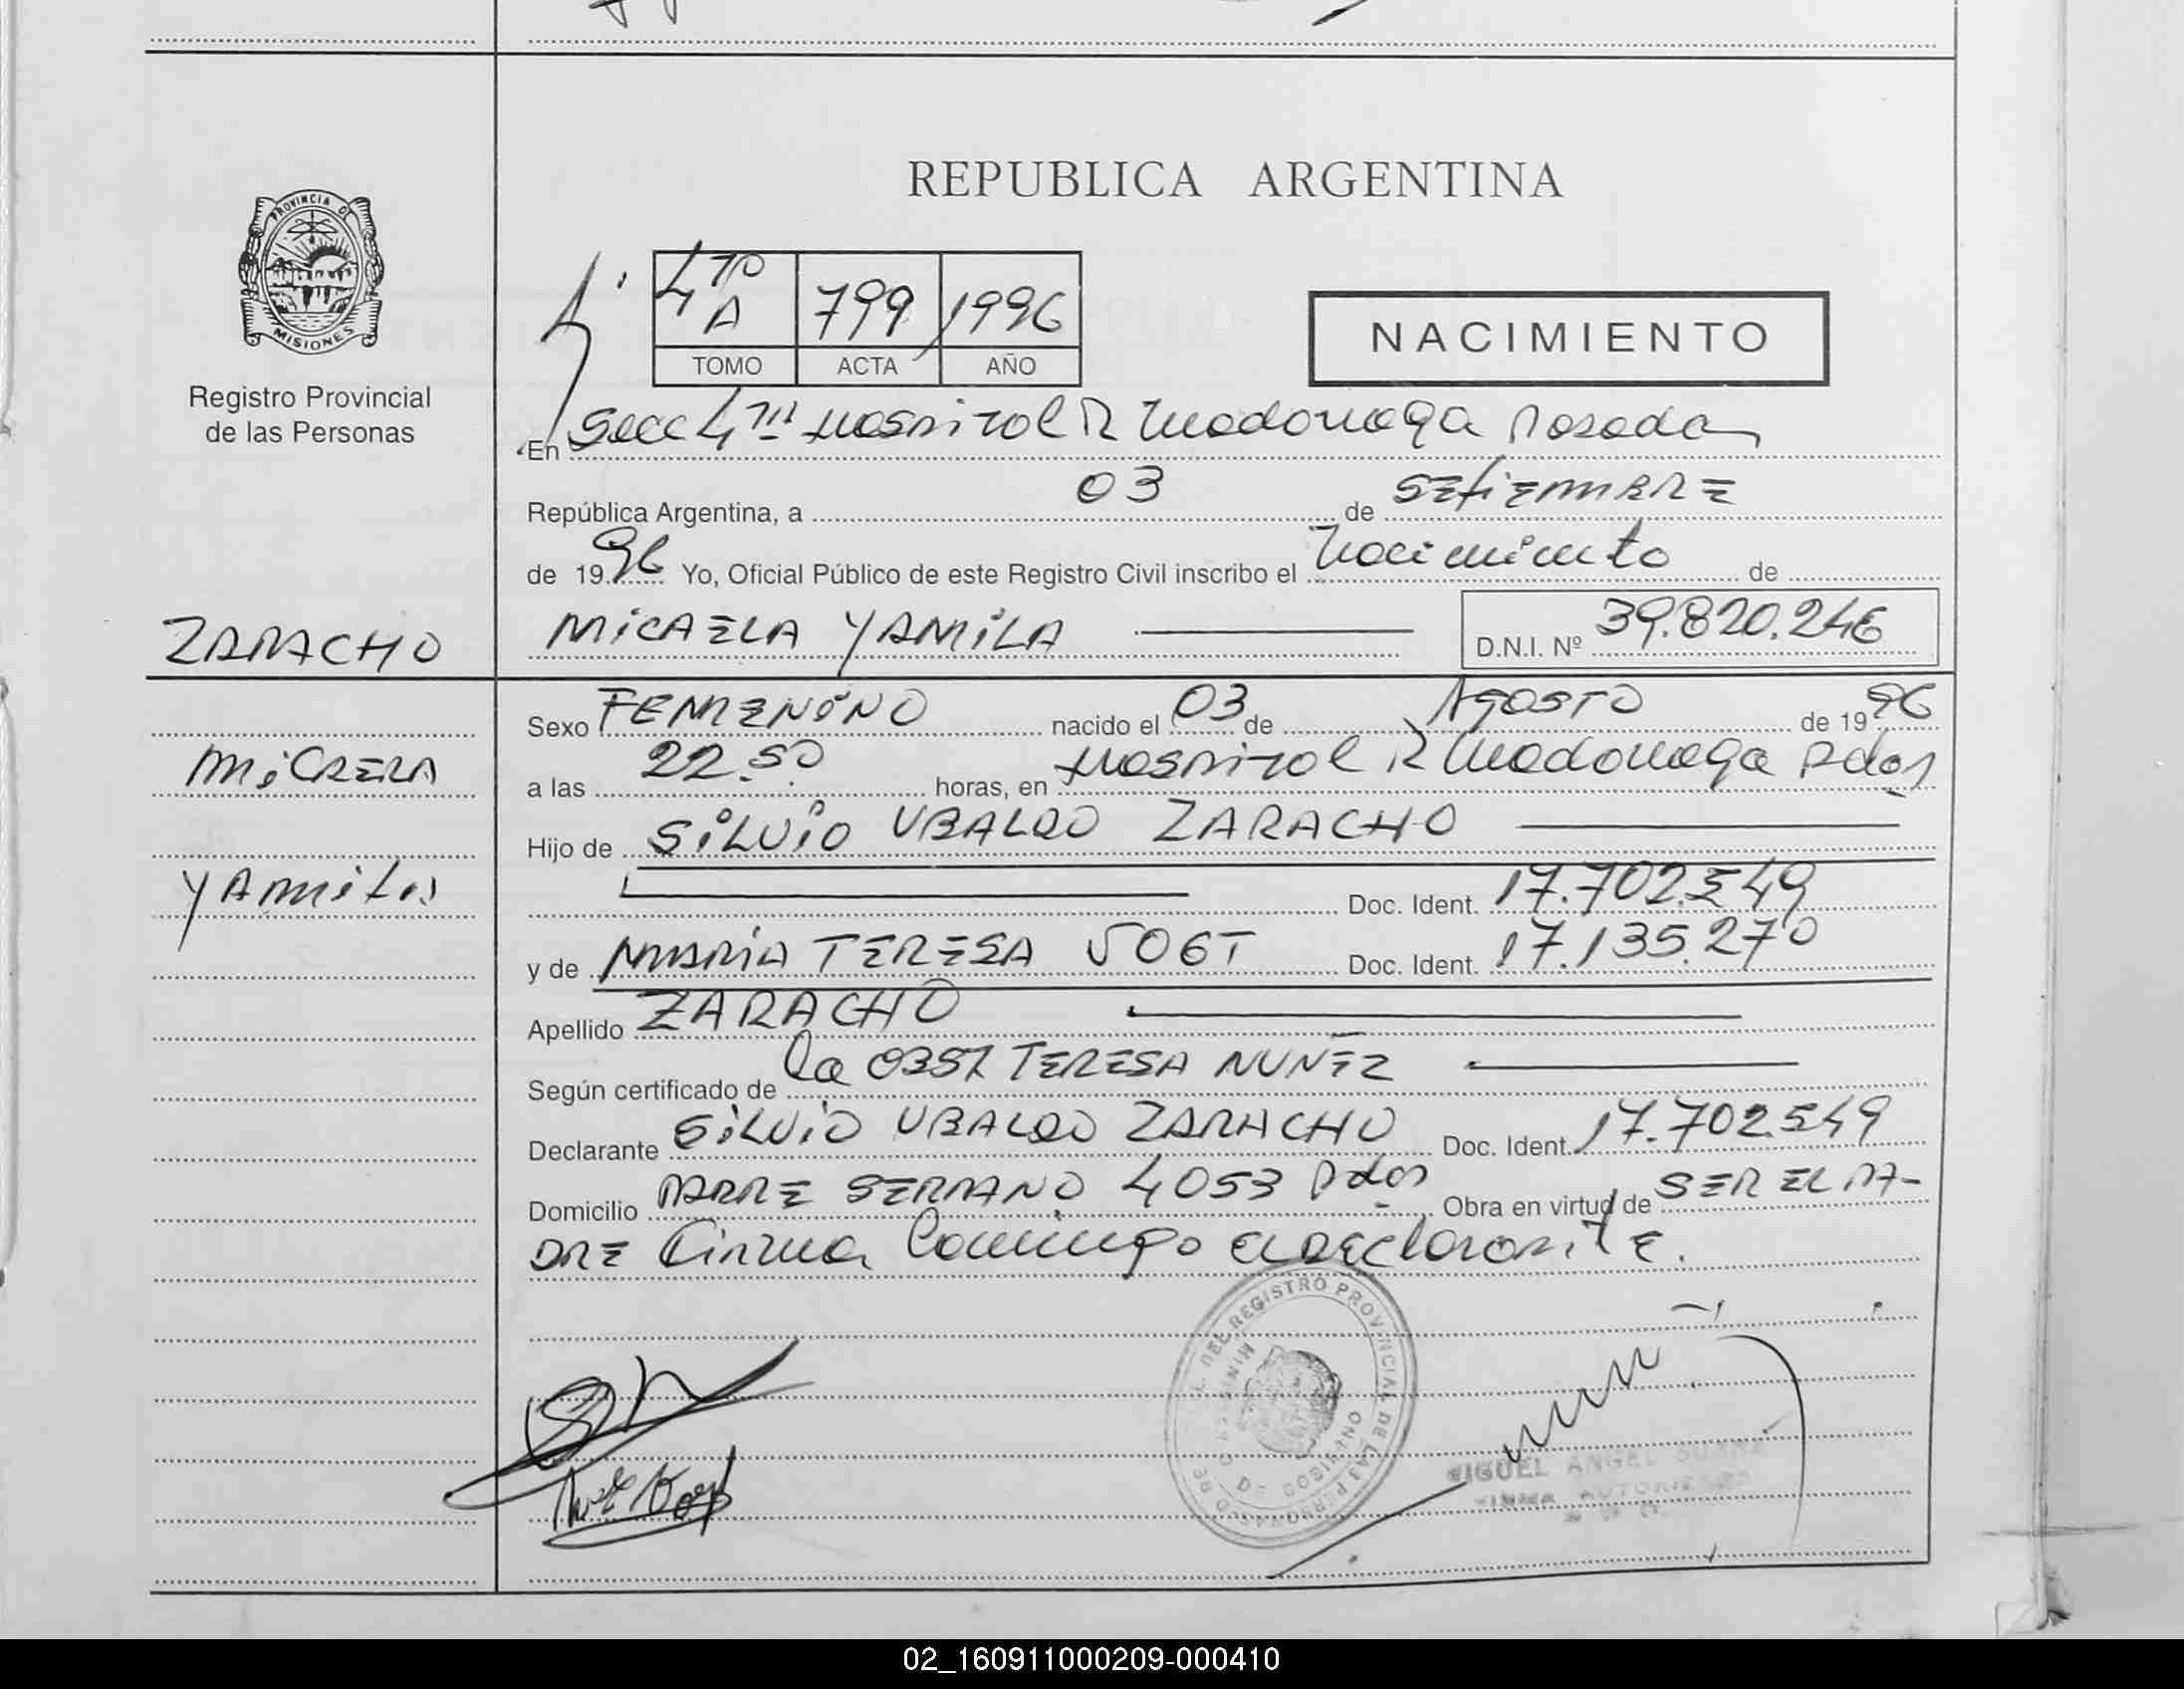 REPUBLICA ARGENTINA
PROVINCIA DE
MISIONES
Registro Provincial
de las Personas
4TO A 799 1996
TOMO ACTA AÑO
NACIMIENTO
En Secc 4ta Hospital R Madariaga Posadas
República Argentina, a 03 de SETIEMBRE
de 1996 Yo, Oficial Público de este Registro Civil inscribo el Nacimiento de
ZARACHO
MICAELA YAMILA D.N.I. Nº 39.820.246
MICAELA
YAMILA
Sexo FEMENINO nacido el 03 de AGOSTO de 1996
a las 22.50 horas, en Hospital R Madariaga Pdas
Hijo de SILVIO UBALDO ZARACHO
Doc. Ident. 17.702.549
y de MARIA TERESA VOGT Doc. Ident. 17.135.270
Apellido ZARACHO
Según certificado de la OBST TERESA NUÑEZ
Declarante SILVIO UBALDO ZARACHO Doc. Ident. 17.702549
Domicilio PADRE SERRANO 4053 Pdas Obra en virtud de SER EL PA-
DRE Firma Conmigo el DEClarante.
DEL REGISTRO PROVINCIAL DE LAS PERSONAS
MIGUEL ANGEL
FIRMA AUTORIZADA
02_160911000209-000410